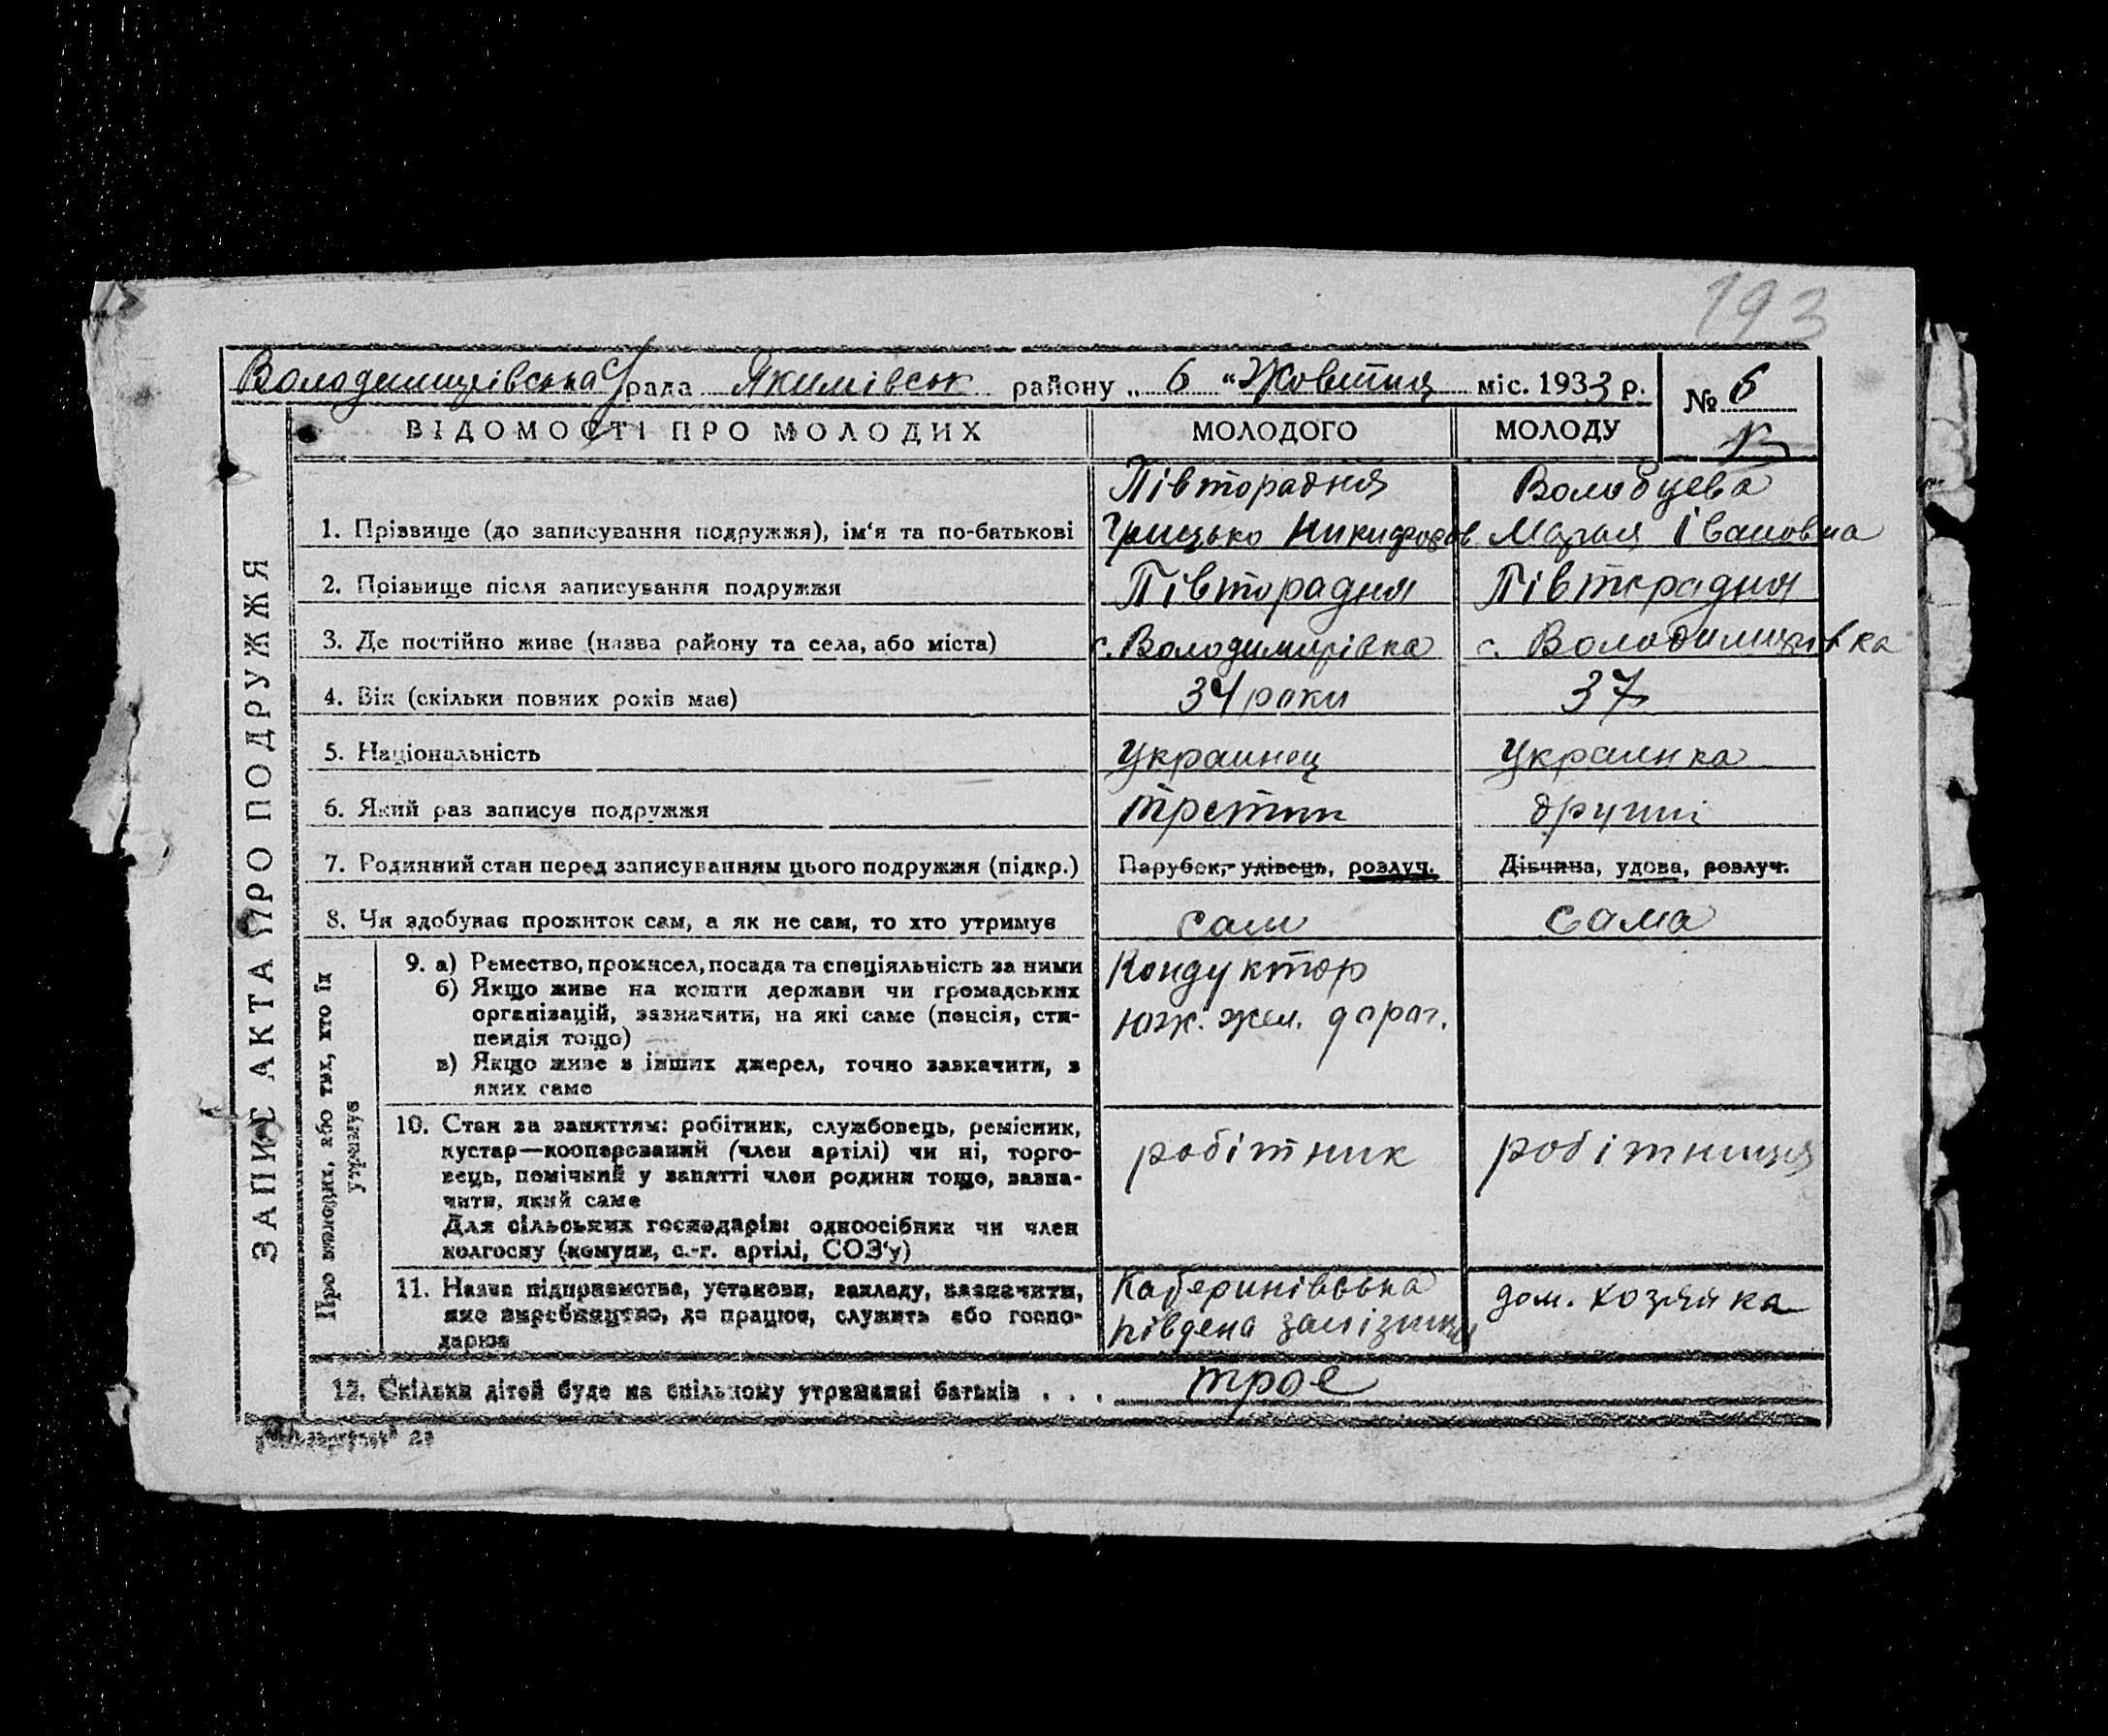 193
Володимирівська с/рада Якимівськ району „ 6 “ Жовтня міс. 1933 р.
№ 6
ЗАПИС АКТА ПРО ПОДРУЖЖЯ
ВІДОМОСТІ ПРО МОЛОДИХ МОЛОДОГО МОЛОДУ
Півторадня Волобуева
1. Прізвище (до записування подружжя), ім‘я та по-батькові Грицько Никифоров Мария Івановна
2. Прізвище після записування подружжя Півторадня Півторадня
3. Де постійно живе (назва району та села, або міста) с. Володимирівка с. Володимировка
4. Вік (скільки повних років має) 34 роки 37
5. Національність Украинец Украинка
6. Який раз записує подружжя третий другий
7. Родинний стан перед записуванням цього подружжя (підкр.) Парубок, удівець, розлуч. Дівчина, удова, розлуч.
8. Чи здобуває прожиток сам, а як не сам, то хто утримує сам сама
Про молодих, або тих, хто їх
утримує
9. а) Ремество, промисел, посада та спеціяльність за ними Кондуктор
б) Якщо живе на кошти держави чи громадських
організацій, зазначити, на які саме (пенсія, сти- Юж. жел. дорог.
пендія тощо)
в) Якщо живе з інших джерел, точно зазначити, з
яких саме
10. Стан за заняттям: робітник, службовець, ремісник,
кустар—кооперований (член артілі) чи ні, торго- робітник робітниця
вець, помічний у занятті член родини тощо, зазна-
чити, який саме
Для сільських господарів: одноосібник чи член
колгоспу (комуни, с.-г. артілі, СОЗ‘у)
11. Назва підприємства, установи, закладу, зазначити,
яке виробництво, де працює, служить або госпо- дом. хозяйка
дарює південа залізниця
12. Скільки дітей буде на спільному утриманні батьків . . . трое